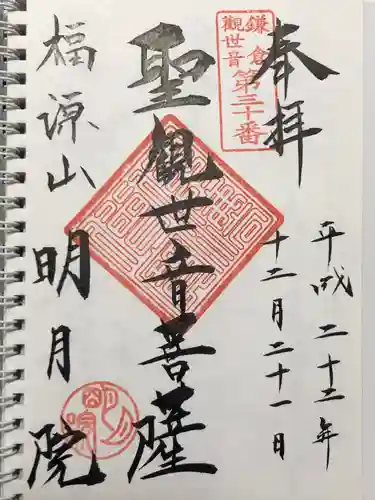 奉拝
平成二十二年
十二月二十一日
鎌倉
観世音
第三十番
聖観世音菩薩
福源山
明月院
明月院